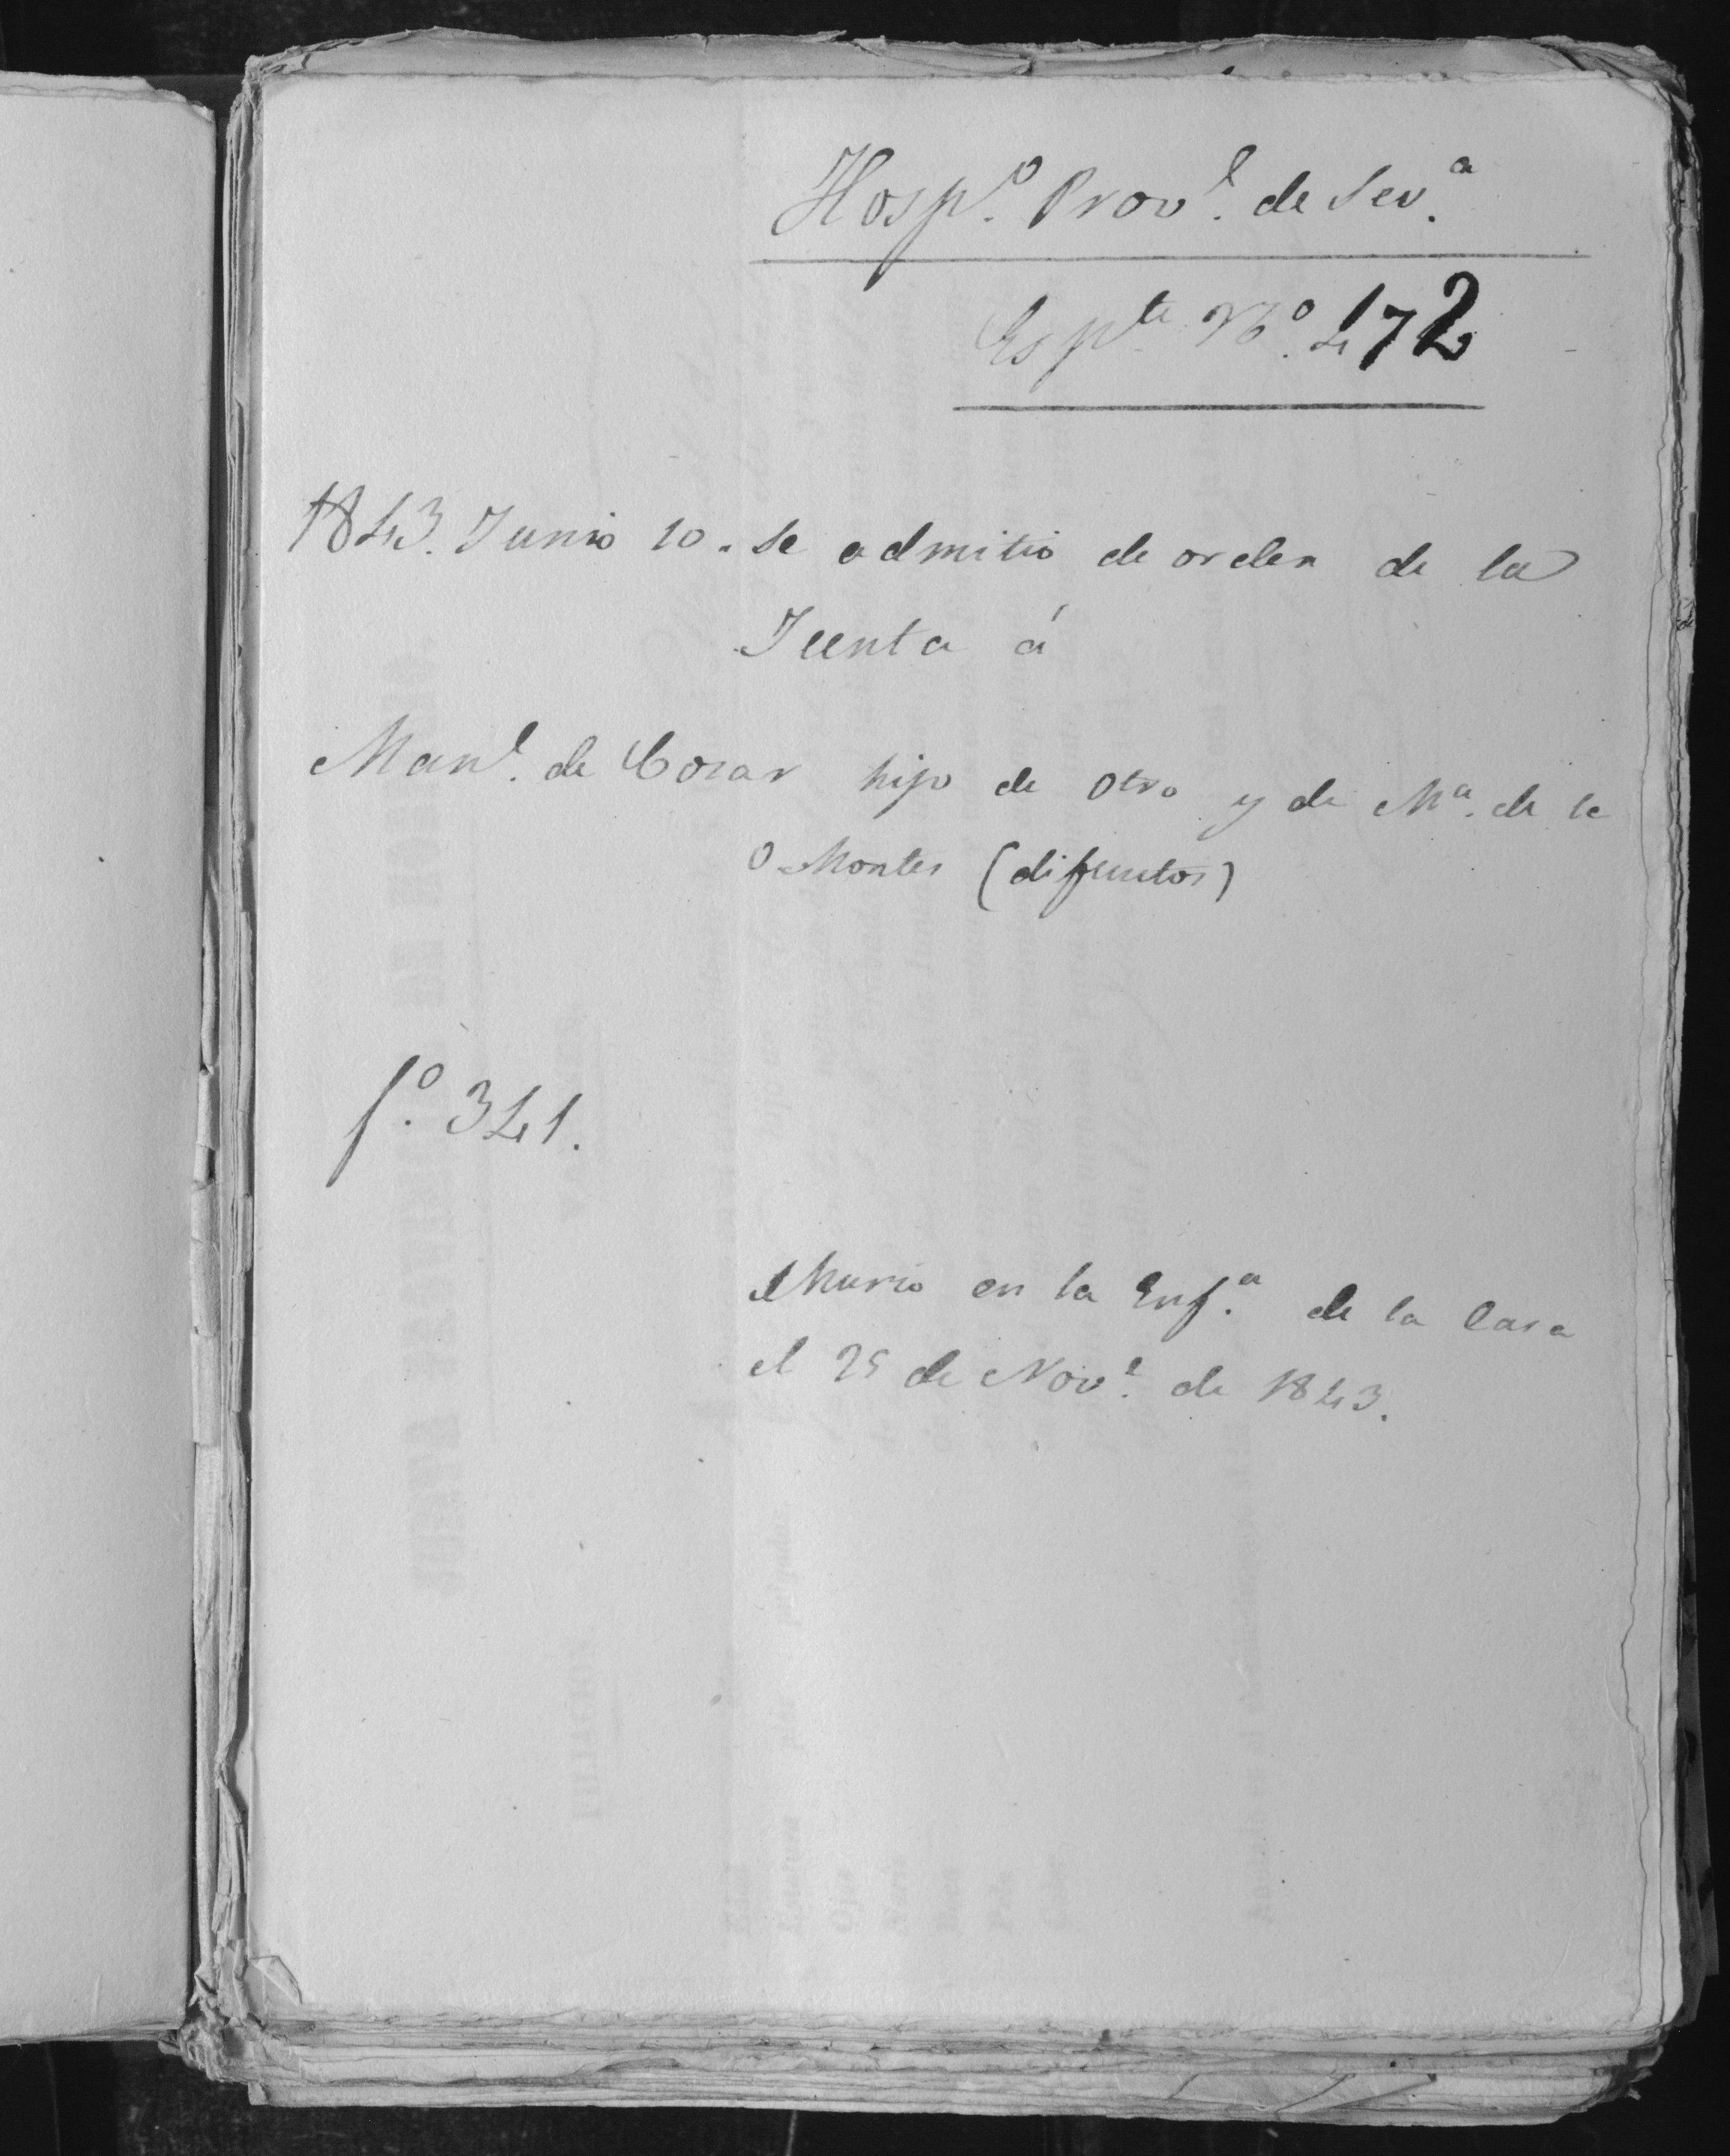 Hosp.º Prov.l de Sev.ª
Esp.te Nº. 472
1843. Junio 10. Se admitio de orden de la
Junta á
Man.l de Cozar hijo de otro y de Mª. de la
O Montes (difuntos)
fº. 341.
Murio en la Enf.ª de la Casa
el 25 de Nov.e de 1843.